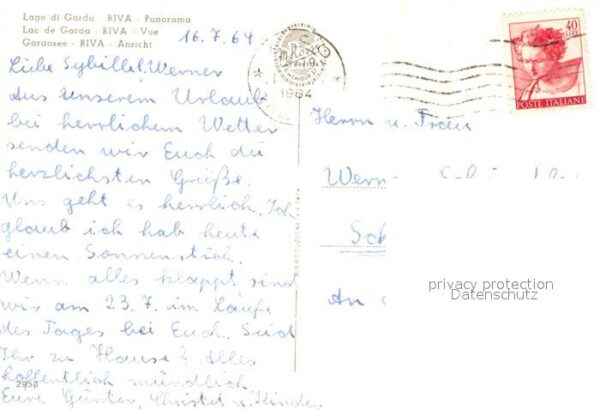 Lago di Garda - RIVA - Panorama
Lac de Garda - RIVA - Vue
Gardasee - RIVA - Ansicht
16.7.64
1964
40
LIRE
POSTE ITALIANE
Liebe Sybille! Werner
Aus unserem Urlaub
bei herrlichem Wetter
senden wir Euch die
herzlichsten Grüße.
Uns geht es herrlich. Ich
glaub ich hab heute
einen Sonnenstich.
Wenn alles klappt, sind
wir am 23.7. im Laufe
des Tages bei Euch. Seid
Ihr zu Hause? Alles
hoffentlich mündlich
Eure Günter, Christel u. Kinder
2958
RIPRODUZIONE VIETATA
Herrn u. Frau
Wern
Sch
An
privacy protection
Datenschutz